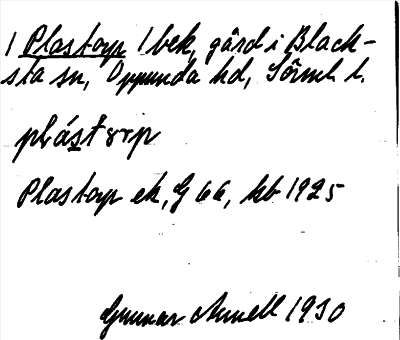 1 Plastorp 1 bek, gård i Black-
sta sn, Oppunda hd, Sörml. l.
plástorp
Plastorp ek, G 66, kb 1925
Gunnar 1930